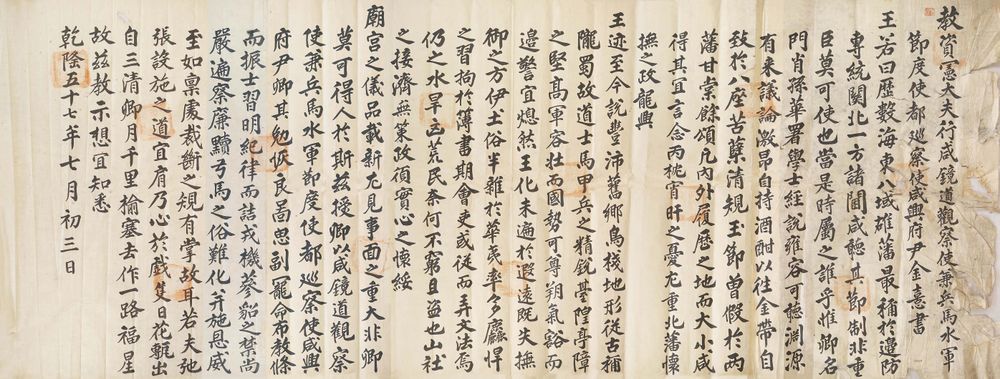 教資憲大夫行咸鏡道觀察使兼兵馬水軍
節度使都巡察使咸興府尹金憙書
王若曰歷數海東八域雄藩最稱於邊防
專統關北一方諸閫咸聽其節制非重
臣莫可使也當是時屬之誰乎惟卿名
門肖孫華署學士經說雍容可聽淵源
有來議論激昂自持酒酣以往金帶自
致於八座苦蘗清規玉節曾假於兩
藩甘棠餘頌凡內外履歷之地而大小咸
得其宜言念丙枕宵旰之憂尤重北藩懷
撫之政龍興
王迹至今說豊沛舊鄉鳥棧地形從古稱
隴蜀故道士馬甲兵之精銳臺隍亭障
之堅高軍容壯而國勢可尊朔氣豁而
邊警宜熄然王化未遍於遐遠既失撫
御之方伊土俗半雜於華夷率多麤悍
之習拘於簿書期會吏或從而弄文法焉
仍之水旱荒民奈何不窮且盜也山社
之接濟無策政須實心之懷綏
廟宮之儀品載新尤見事面之重大非卿
莫可得人於斯茲授卿以咸鏡道觀察
使兼兵馬水軍節度使都巡察使咸興
府尹卿其勉恢良啚思副寵命布教條
而振士習明紀律而詰戎機蔘貂之禁尚
嚴遍察廉黷弓馬之俗難化并施恩威
至如稟處裁斷之規有掌故耳若夫弛
張設施之道宜肩乃心於戲雙日花甎出
自三清卿月千里榆塞去作一路福星
故茲教示想宜知悉
乾隆五十七年七月初三日